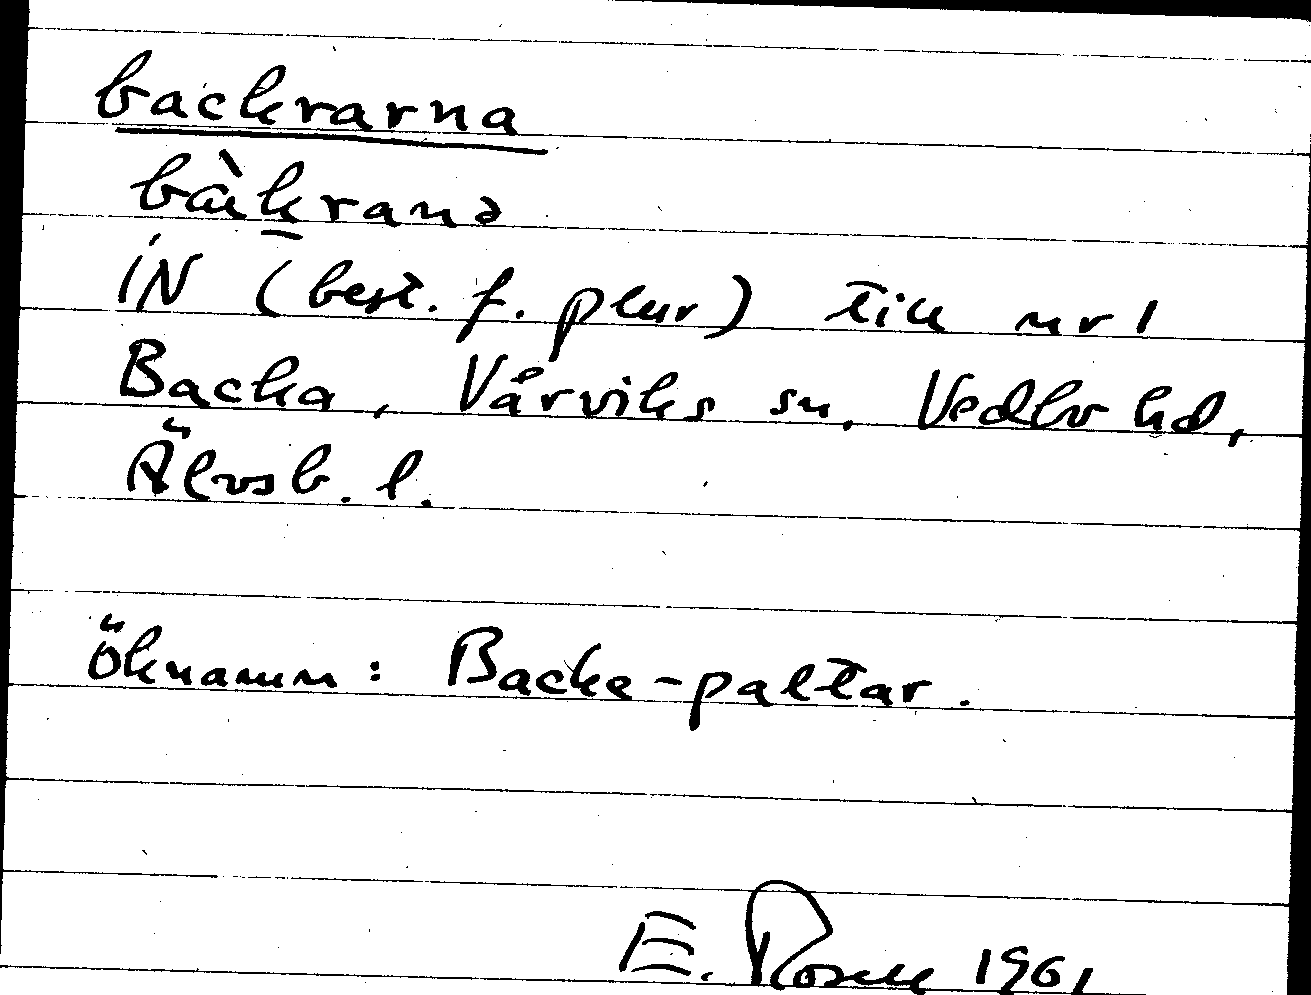 backrarna
bàkranə
IN (best. f. plur) till nr 1
Backa, Vårviks sn, Vedbo hd,
Älvsb. l.
öknamn: Backe-paltar.
E. Rosell 1961